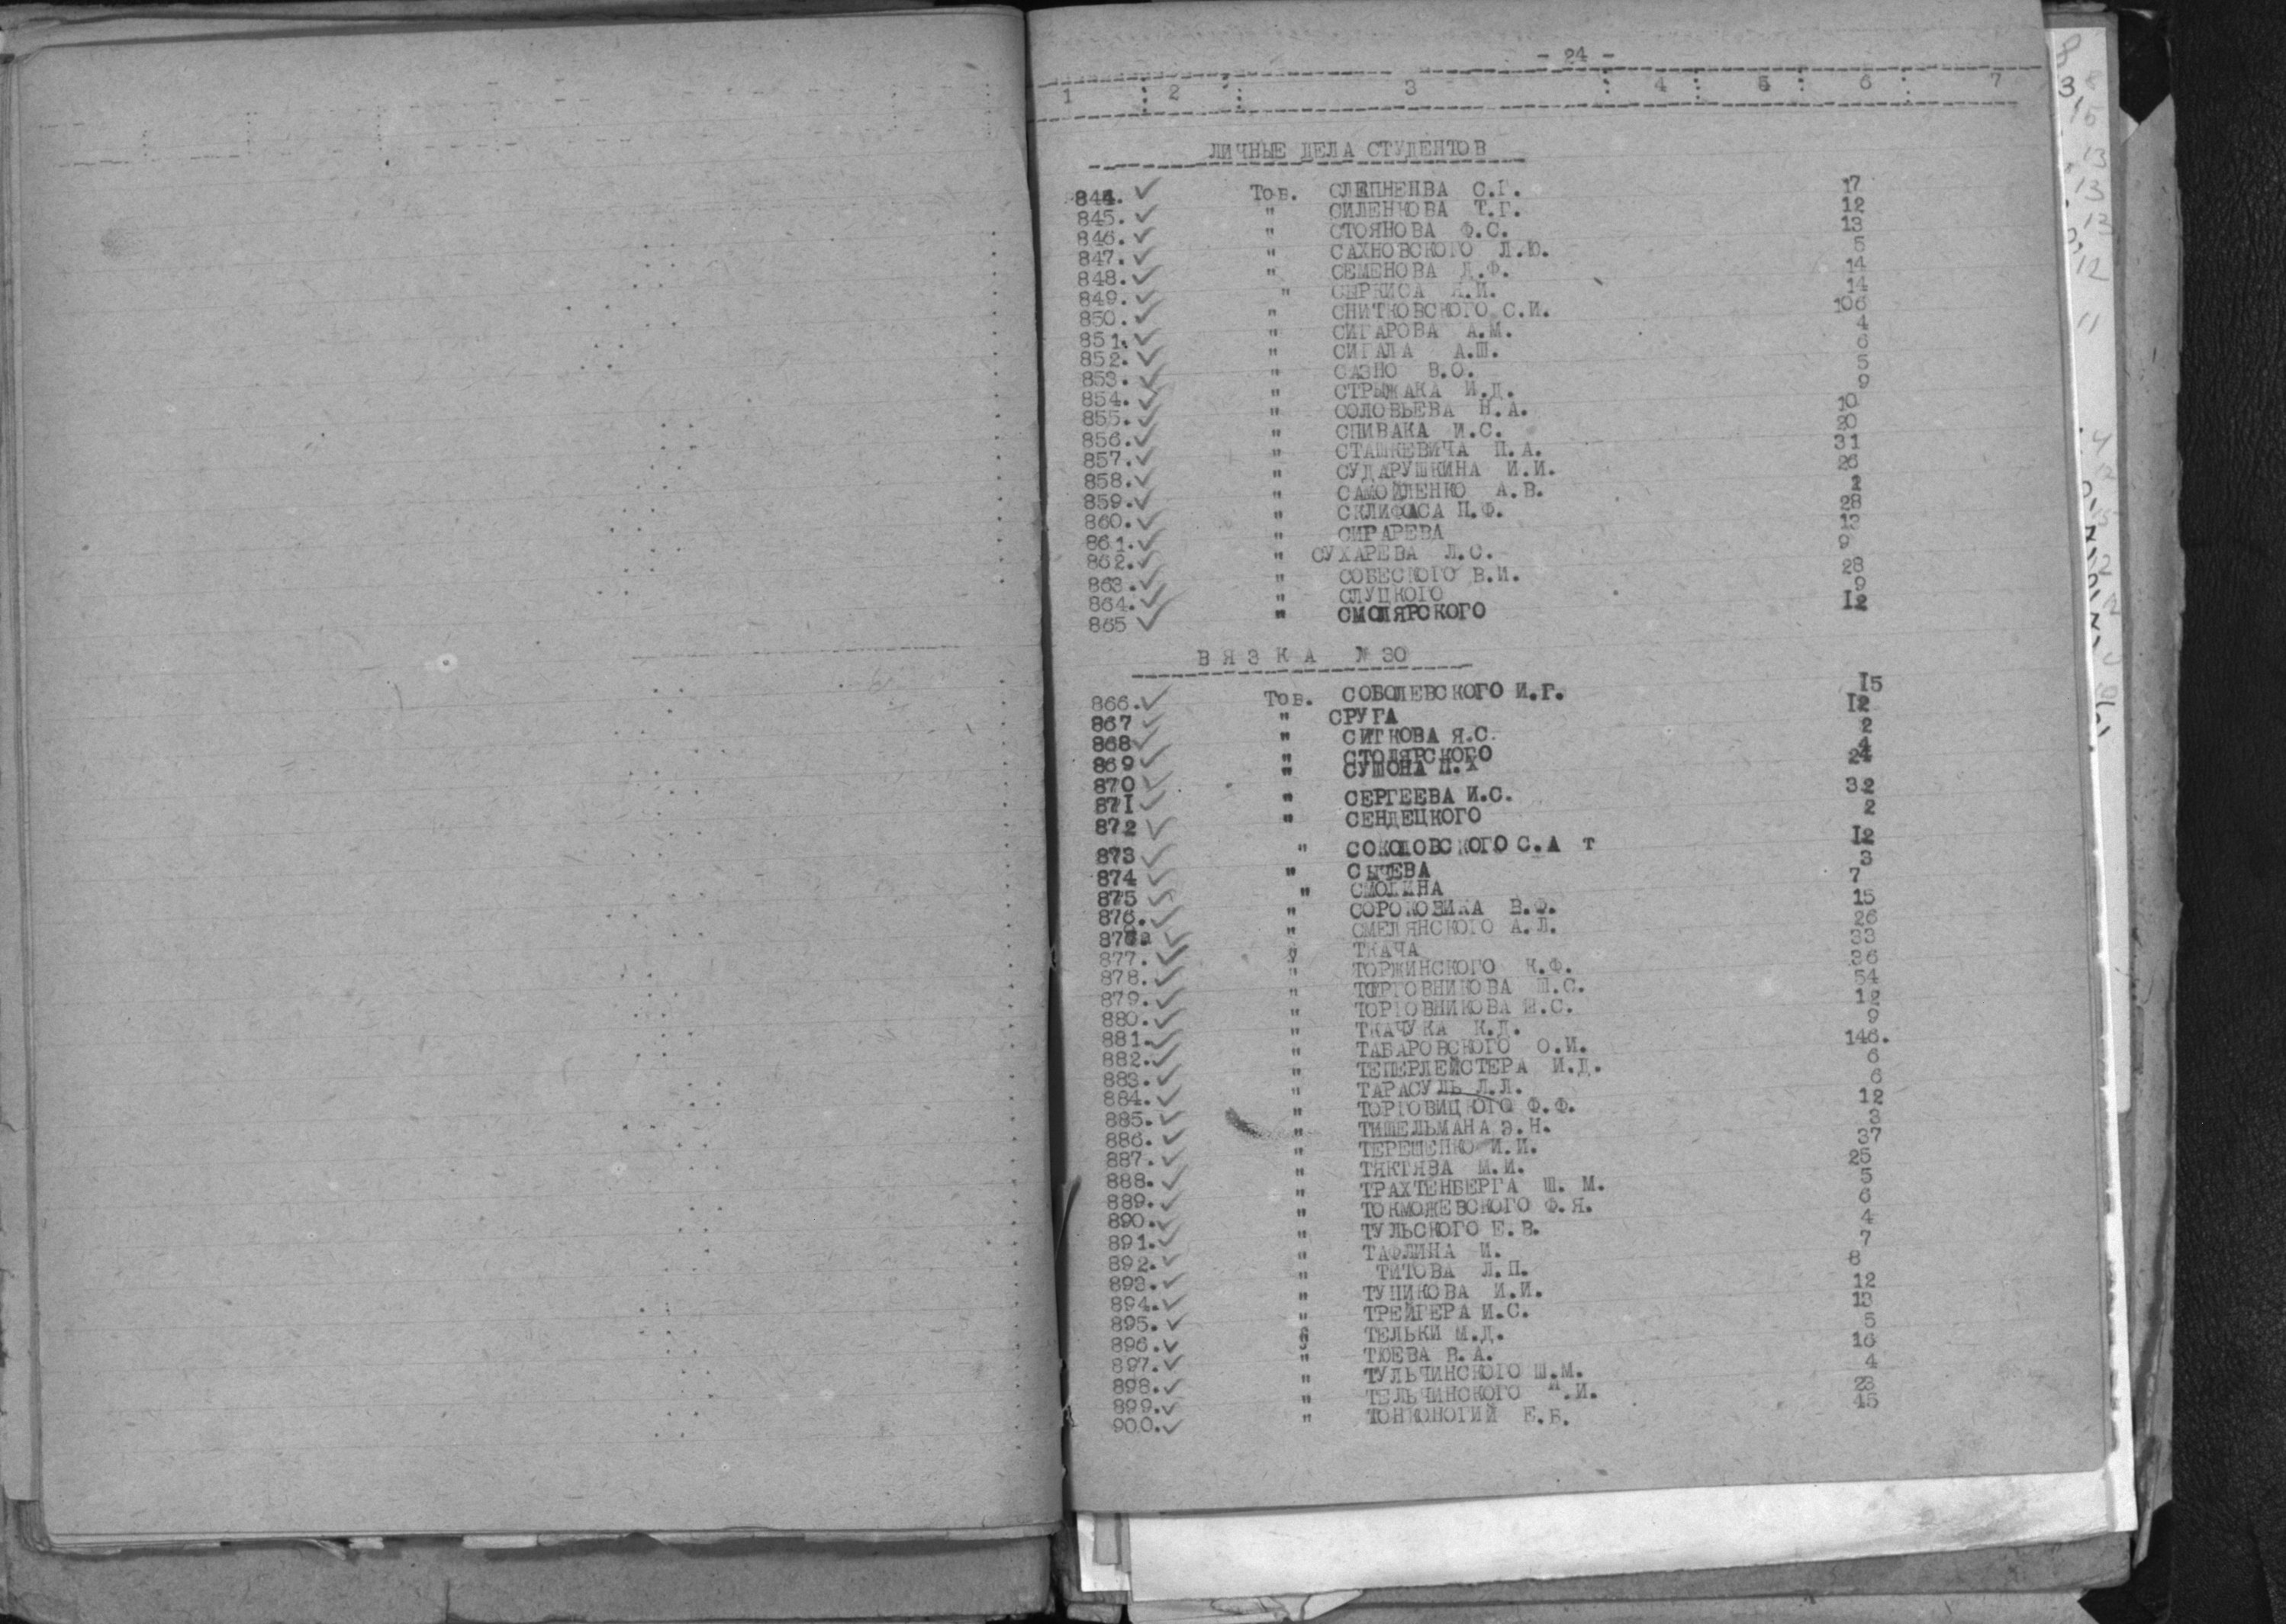 - 24 -
1 : 2 : 3 : 4 : 5 : 6 : 7
ЛИЧНЫЕ ДЕЛА СТУДЕНТОВ
844. ✓ Тов. СЛЕПНЕНВА С.Г. 17
845. ✓ " СИЛЕНКОВА Т.Г. 12
846. ✓ " СТОЯНОВА Ф.С. 13
847. ✓ " САХНОВСКОГО Л.Ю. 5
848. ✓ " СЕМЕНОВА Д.Ф. 14
849. ✓ " СЫРКИСА Я.И. 14
850. ✓ " СНИТКОВСКОГО С.И. 106
851. ✓ " СИГАРОВА А.М. 4
852. ✓ " СИГАЛА А.Ш. 6
853. ✓ " САЗНО В.О. 5
854. ✓ " СТРЫЖАКА И.Д. 9
855. ✓ " СОЛОВЬЕВА Н.А. 10
856. ✓ " СПИВАКА И.С. 20
857. ✓ " СТАШКЕВИЧА П.А. 31
858. ✓ " СУДАРУШКИНА И.И. 26
859. ✓ " САМОЙЛЕНКО А.В.
860. ✓ " СКЛИФАСА П.Ф. 28
861. ✓ " СИРАРЕВА 13
862. ✓ " СУХАРЕВА Л.С. 9
863. ✓ " СОБЕСКОГО В.И. 28
864. ✓ " СЛУЦКОГО 9
865 ✓ " СМОЛЯРСКОГО I2
В Я З К А № 30
866. ✓ Тов. СОБОЛЕВСКОГО И.Г. I5
867 ✓ " СРУГА I2
868 ✓ " СИТКОВА Я.С. 2
869 ✓ " СТОЛЯРСКОГО 4
870 ✓ " СУШОНА П.Х 24
87I ✓ " СЕРГЕЕВА И.С. 32
872 ✓ " СЕНДЕЦКОГО 2
873 ✓ " СОКОЛОВСКОГО С.А т I2
874 ✓ " СЫЧЕВА 3
875 ✓ " СМОЛИНА 7
876. ✓ " СОРОКОВИКА В.Ф. 15
876а ✓ " СМЕЛЯНСКОГО А.Л. 26
877. ✓ " ТКАЧА 33
878. ✓ " ТОРЖИНСКОГО К.Ф. 36
879. ✓ " ТОРГОВНИКОВА Ш.С. 54
880. ✓ " ТОРГОВНИКОВА Ш.С. 12
881. ✓ " ТКАЧУКА К.Д. 9
882. ✓ " ТАБАРОВСКОГО О.И. 146.
883. ✓ " ТЕПЕРЛЕЙСТЕРА И.Д. 6
884. ✓ " ТАРАСУЛЬ Л.Л. 6
885. ✓ " ТОРГОВИЦКОГО Ф.Ф. 12
886. ✓ " ТИШЕЛЬМАНА Э.Н. 3
887. ✓ " ТЕРЕЩЕНКО И.И. 37
888. ✓ " ТЯКТЯВА М.И. 25
889. ✓ " ТРАХТЕНБЕРГА Ш. М. 5
890. ✓ " ТОКМОЖЕВСКОГО Ф.Я. 6
891. ✓ " ТУЛЬСКОГО Е.В. 4
892. ✓ " ТАФЛИНА И. 7
893. ✓ " ТИТОВА Л.П. 8
894. ✓ " ТУПИКОВА И.И. 12
895. ✓ " ТРЕЙГЕРА И.С. 13
896. ✓ " ТЕЛЬКИ М.Д. 5
897. ✓ " ТЮЕВА В.А. 16
898. ✓ " ТУЛЬЧИНСКОГО Ш.М. 4
899. ✓ " ТЕЛЬЧИНСКОГО И.И. 23
900. ✓ " ТОНКОНОГИЙ Е.Б. 15